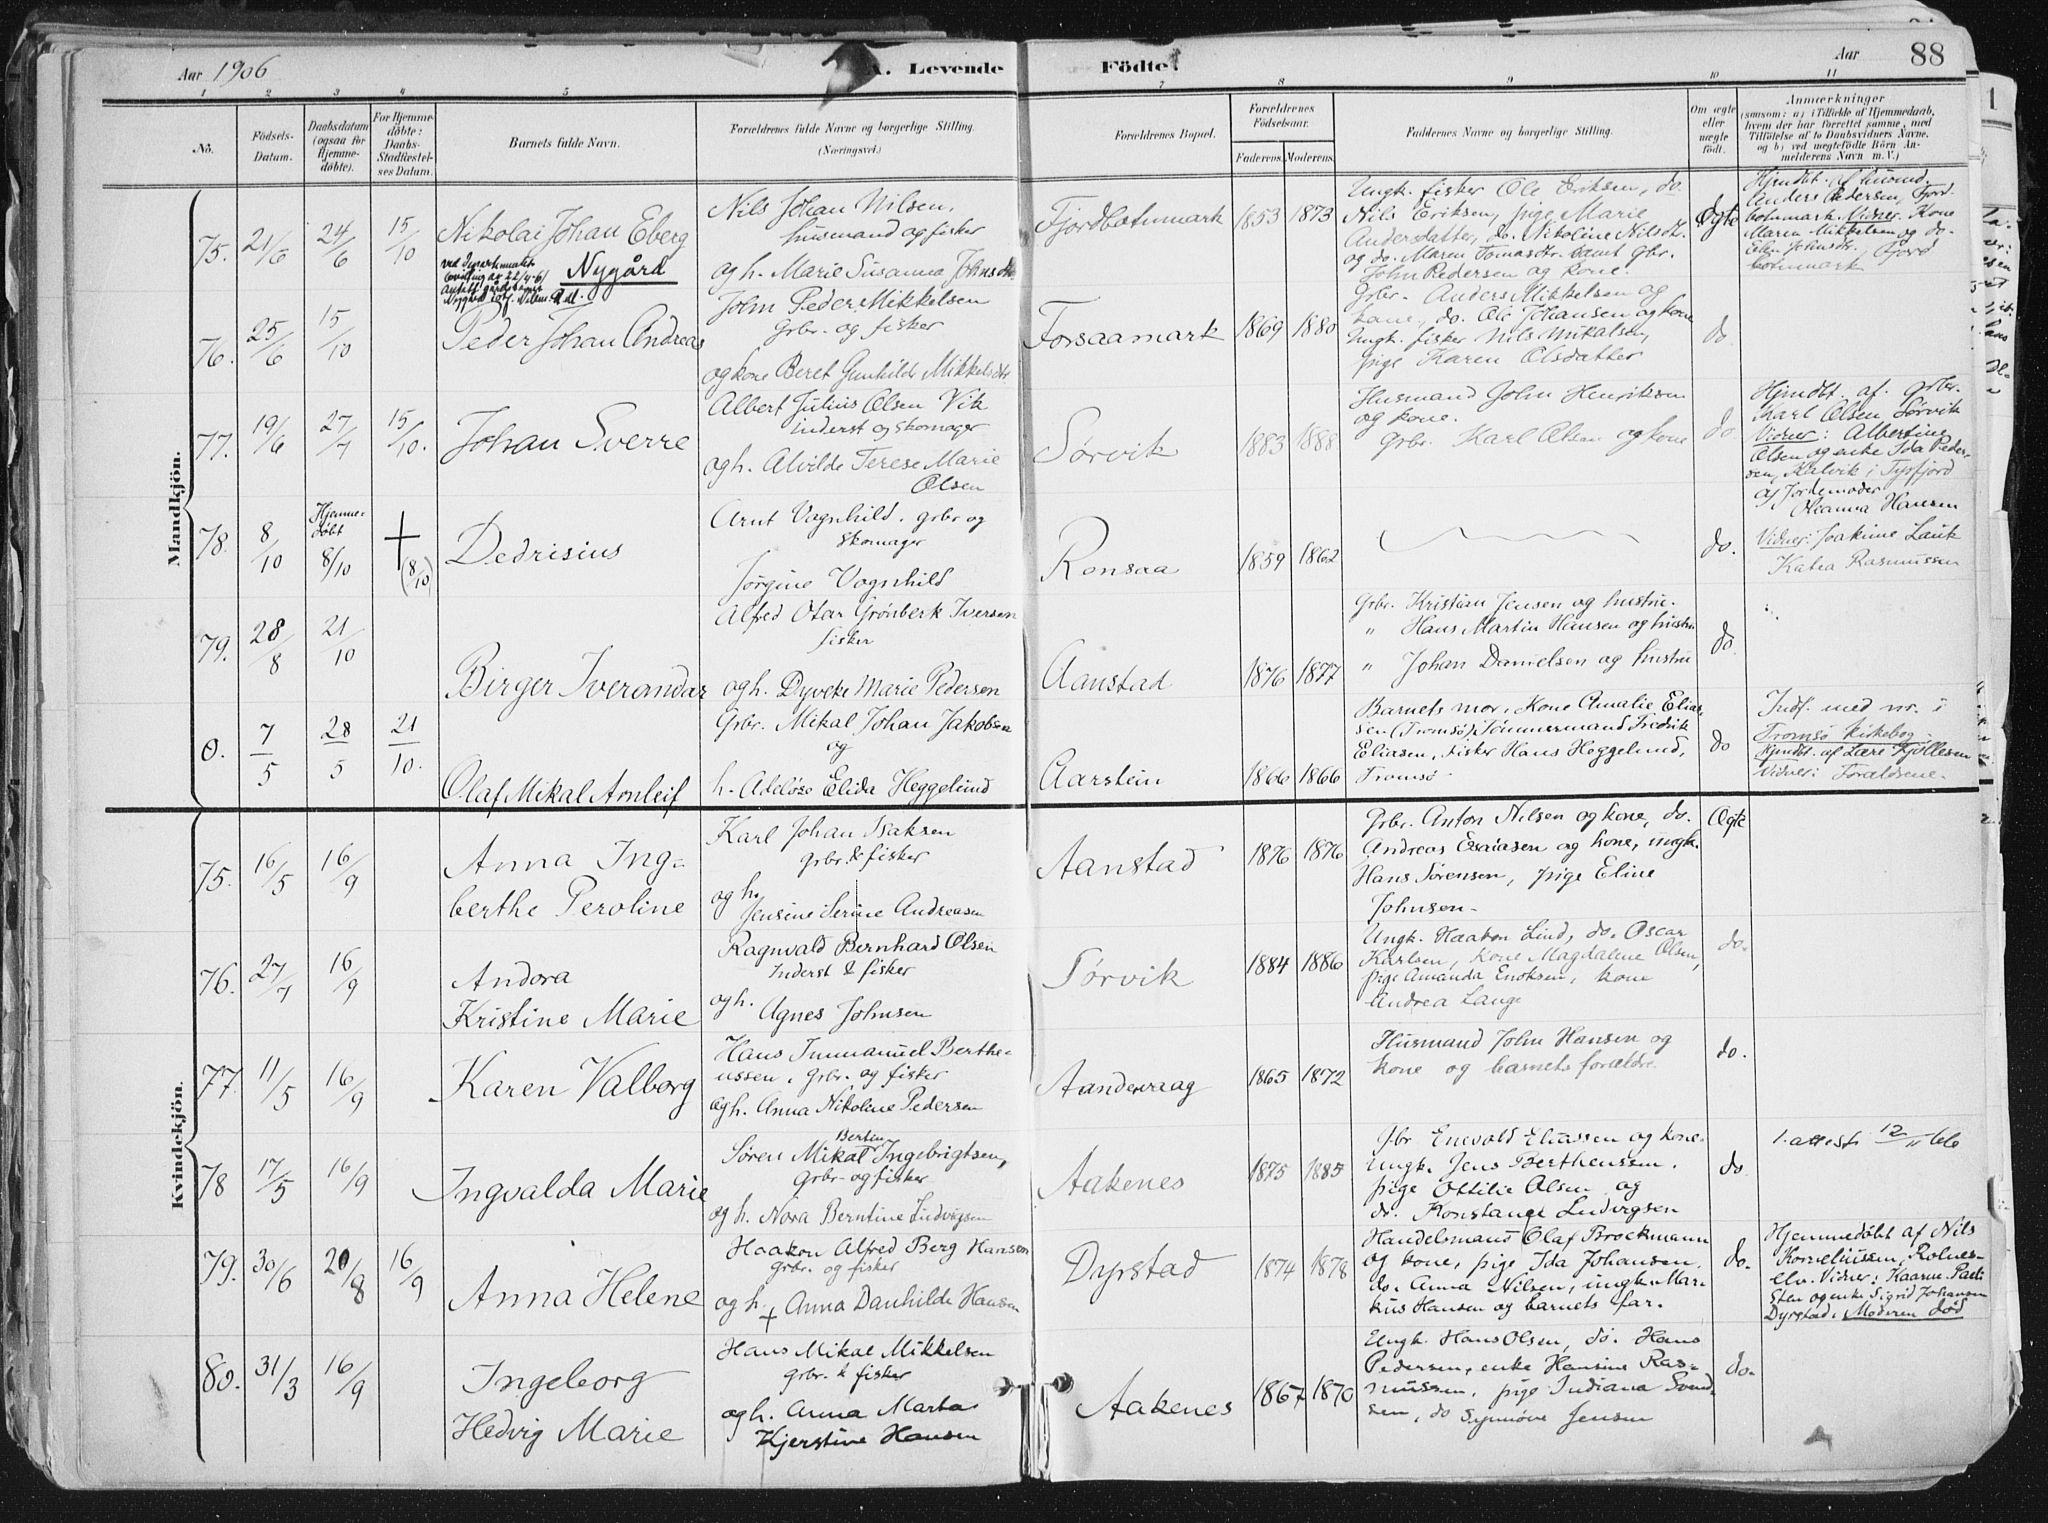 Aar 1906
A. Levende
Fødte.
Aar
88
1 2 3 4 5 7 8 9 10 11
No.
Födsels-
Datum.
Daabsdatum
(ogsaa for
Hjemme-
døbte).
For Hjemme-
døbte:
Daabs-
Stadfæstel-
ses Datum.
Barnets fulde Navn.
Forældrenes fulde Navne og borgerlige Stilling.
(Næringsvei.)
Forældrenes Bopæl.
Forældrenes
Fødselsaar.
Faderens. Moderens.
Faddernes Navne og borgerlige Stilling.
Om ægte
eller
uægte
født.
Anmærkninger
(saasom: a) i Tilfælde af Hjemmedaab,
hvem der har forrettet samme, med
Tilføielse af to Daabsvidners Navne.
og b) ved uægtefødte Börn An-
melderens Navn m. V.)
Mandkjön.
75. 21/6 24/6 15/10
Nikolai Johan Eberg
Nygård
Nils Johan Nilsen,
husmand og fisker
og h. Marie Susanna Johnsdtr
Fjordbotnmark 1853 1873
Ungk. fisker Ole Eriksen, do.
Nils Eriksen, pige Marie
Andersdatter, do. Nikoline Nilsdtr.
og do. Maren Tomasdtr. samt gbr.
John Pedersen og kone.
Ægte
Hjmdbt. af husmd.
Anders Pedersen, Fjord-
botnmark. Vidner: Kone
Maren Mikkelsen og do.
Elen Johnsdtr., Fjord
botnmark
76. 25/6 15/10
Peder Johan Andreas
John Peder Mikkelsen
Grbr. og fisker
og kone Beret Gunhilde Mikkelsdtr
Forsaamark 1869 1880
Grbr. Anders Mikkelsen og
kone, do. Ole Johansen og kone
Ungk. fisker Nils Mikalsen,
pige Karen Olsdatter
do.
77. 19/6 27/7 15/10.
Johan Sverre
Albert Julius Olsen Vik
inderst og skomager
og h. Alvilde Terese Marie
Olsen
Sørvik 1883 1888
Husmand John Henriksen
og kone.
Grbr. Karl Olsen og kone
do.
Hjmdbt. af. grbr.
Karl Olsen Sørvik
Vidner: Albertine
Olsen og enke Ida Peder-
sen, Kalvik i Tysfjord
af Jordemoder
Oleanna Hansen
78. 8/10 Hjemme-
døbt
8/10 + (8/10)
Dedrisius
Arnt Vagnhild. grbr og
skomager
Jørgine Vagnhild
Rensaa 1859 1862
do.
Vidner: Joakime Lauk
Katea Rasmussen
79. 28/8 21/10
Birger Iverandar
Alfred Otar Grønberk Iversen
fisker
og h. Dyveke Marie Pedersen
Aanstad 1876 1877
Grbr. Kristian Jensen og hustru.
" Hans Martin Hansen og hustru
" Johan Danielsen og hustru
do.
0. 7/5 28/5 21/10.
Olaf Mikal Arnleif
Grbr. Mikal Johan Jakobsen
og
h. Adeløse Elida Heggelund
Aarstein 1866 1866
Barnets mor, Kone Amalie Elias-
sen (Tromsø) Tømmermand Fredrik
Eliasen, Fisker Hans Heggelund,
Tromsø.
do
Indf. med nr. i
Tromsø kirkebog.
Hjmdbt. af Lære Kjøllesen
Vidner: Forældrene.
Kvindekjön.
75. 16/5 16/9
Anna Ing-
berthe Peroline
Karl Johan Isaksen
grbr. & fisker
og h.
Jensine Serine Andreasen
Aanstad 1876 1876
Grbr. Anton Nilsen og kone, do.
Andreas Esaiasen og kone, ungk.
Hans Sørensen, pige Eline
Johnsen.
Ægte
76. 27/7 16/9
Andora
Kristine Marie
Ragnvald Bernhard Olsen
Inderst & fisker
og h.
Agnes Johnsen
Sørvik 1884 1886
Ungk. Haakon Lind, do. Oscar
Karlsen, Kone Magdalene Olsen,
pige Amanda Enoksen, kone
Andrea Lange
do.
77. 11/5 16/9
Karen Valborg
Hans Immanuel Berthe-
ussen, grbr. og fisker
og h. Anna Nikoline Pedersen
Aanderaag 1865 1872
Husmand John Hansen og
kone og barnets forældre.
do.
78 17/5 16/9
Ingvalda Marie
Bertin
Søren Mikal Ingebrigtsen,
Grbr. og fisker
og h. Nora Berntine Ludvigsen
Aakenes 1875 1885
Gbr Enevold Eliassen og kone.
Ungk. Jens Bertheussen.
pige Ottilie Olsen og
do. Konstanse Ludvigsen
do.
1. attest 12/11 66
79. 30/6 20/8 16/9
Anna Helene
Haakon Alfred Berg Hansen
grbr. og fisker
og h. Anna Danhilde Hansen
+
Dyrstad 1874 1878
Handelsmand Olaf Brockmann
og kone, pige Ida Johansen,
do. Anna Nilsen, ungk. Mar-
kus Hansen og barnets far.
do.
Hjemmedøbt af Nils
Korneliussen, Rolnes-
elv. Vidner:
og enke Sigrid Johansen
Dyrstad. Moderen død
80. 31/3 16/9
Ingeborg
Hedvig Marie
Hans Mikal Mikkelsen
grbr. & fisker
og h. Anna Marta
Kjerstine Hansen
Aakenes 1867 1870
Ungk. Hans Olsen, do. Hans
Pedersen, enke Hansine Ras-
mussen, pige Indiana Svend-
sen, do Synnøve Jensen
do.